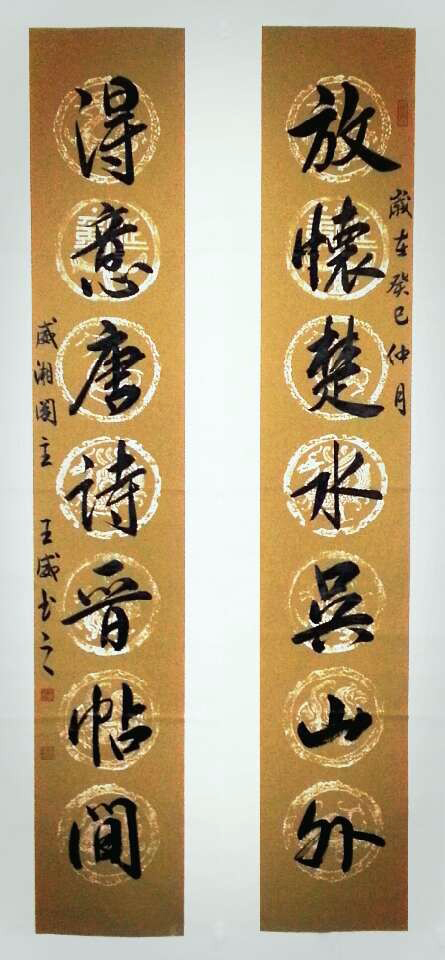 放懷楚水吳山外
歲在癸巳仲月
得意唐詩晉帖間
威湘閣主 王威书之